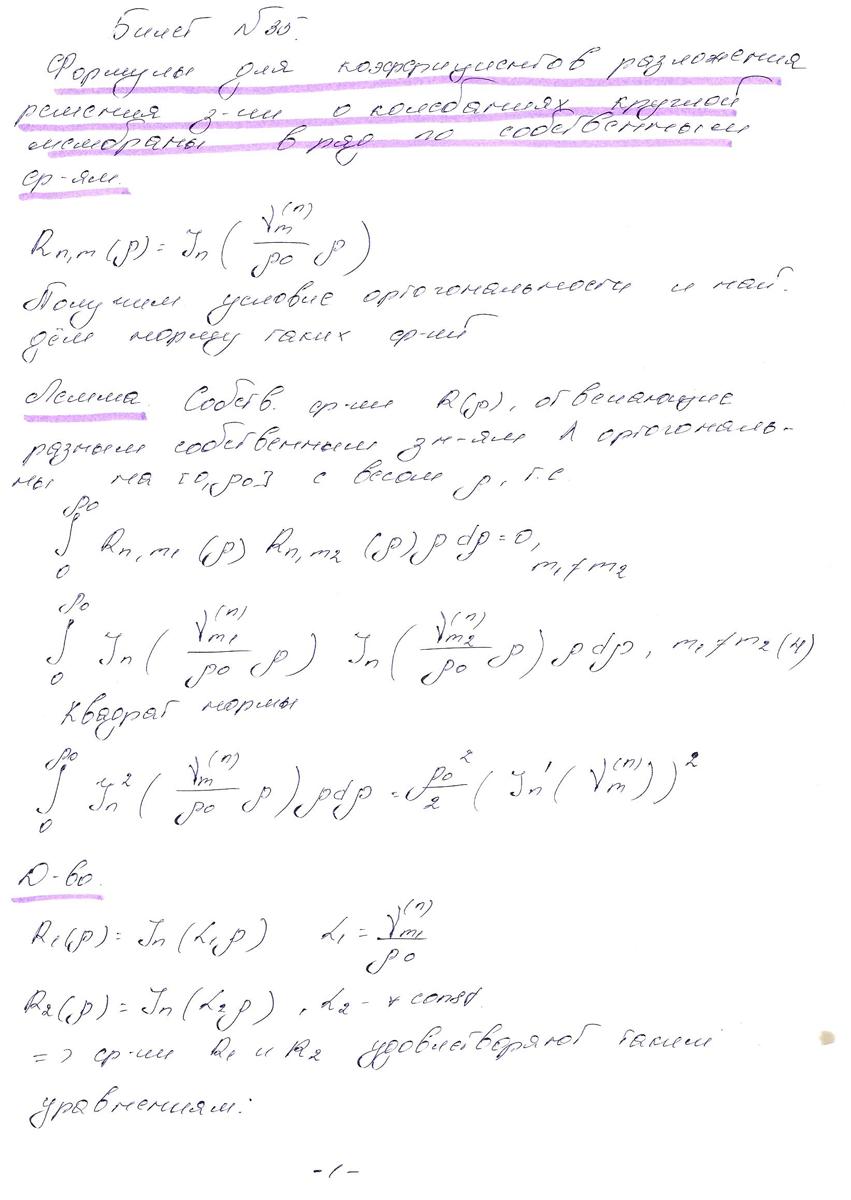 Билет №35.
Формулы для коэффициентов разложения
решения з-чи о колебаниях круглой
мембраны в ряд по собственным
ф-ям.
R_{n,m}(ρ) = J_n ( γ_m^{(n)} / ρ_0 ρ )
Получим условие ортогональности и най-
дём норму таких ф-ий
Лемма. Собств. ф-ии R(ρ), отвечающие
разным собственным зн-ям λ ортогональ-
ны на [0, ρ_0] с весом ρ, т.е.
∫_0^{ρ_0} R_{n,m_1}(ρ) R_{n,m_2}(ρ) ρ dρ = 0, m_1 ≠ m_2
∫_0^{ρ_0} J_n ( γ_{m_1}^{(n)} / ρ_0 ρ ) J_n ( γ_{m_2}^{(n)} / ρ_0 ρ ) ρ dρ, m_1 ≠ m_2 (4)
Квадрат нормы
∫_0^{ρ_0} J_n^2 ( γ_m^{(n)} / ρ_0 ρ ) ρ dρ = ρ_0^2 / 2 ( J_n' ( γ_m^{(n)} ) )^2
Д-во.
R_1(ρ) = J_n(α_1 ρ) α_1 = γ_{m_1}^{(n)} / ρ_0
R_2(ρ) = J_n(α_2 ρ), α_2 - ∀ const.
=> ф-ии R_1 и R_2 удовлетворяют таким
уравнениям:
-1-